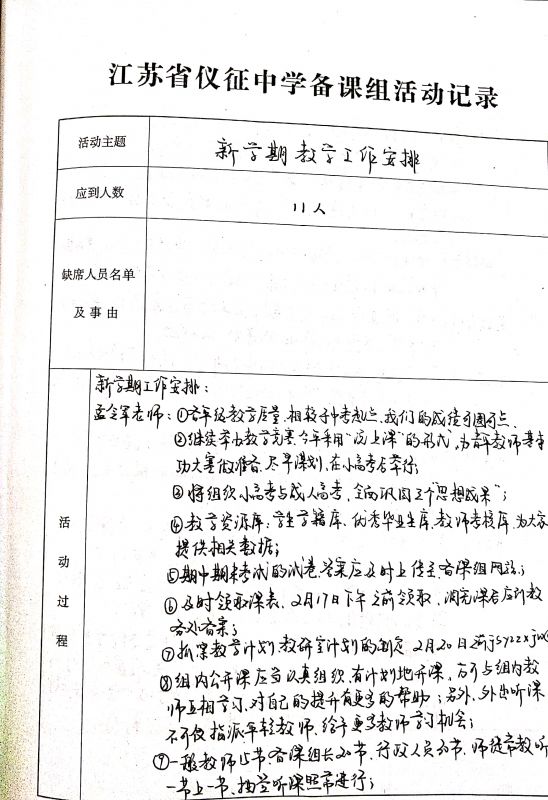 江苏省仪征中学备课组活动记录
活动主题
新学期教学工作安排
应到人数
11人
缺席人员名单
及事由
活动过程
新学期工作安排：
孟令军老师：①各年级教学质量，相较于中考起点，我们的成绩可圈可点
②继续举办教学竞赛，今年采用“说上课”的形式，为青年教师基本
功大赛做准备，尽早谋划，在小高考后举行；
③将组织小高考与成人高考，全面巩固三个“思想成果”；
④教学资源库：学生学籍库，优秀毕业生库，教师考核库，为大家
提供相关数据；
⑤期中期末考试的试卷、答案应及时上传至备课组网站；
⑥及时领取课表，2月17日下午之前领取，调完课后应到教
务处备案；
⑦抓紧教学计划，教研室计划的制定，2月20日前jsyzzxjw@
⑧组内公开课应当认真组织，有计划地开课，方可与组内教
师互相学习，对自己的提升有更多的帮助；另外，外出听课
不可仅指派年轻教师，给予更多教师学习机会；
⑨一般教师15节，备课组长20节，行政人员30节，师徒带教听
一节上一节，抽签听课照常进行；